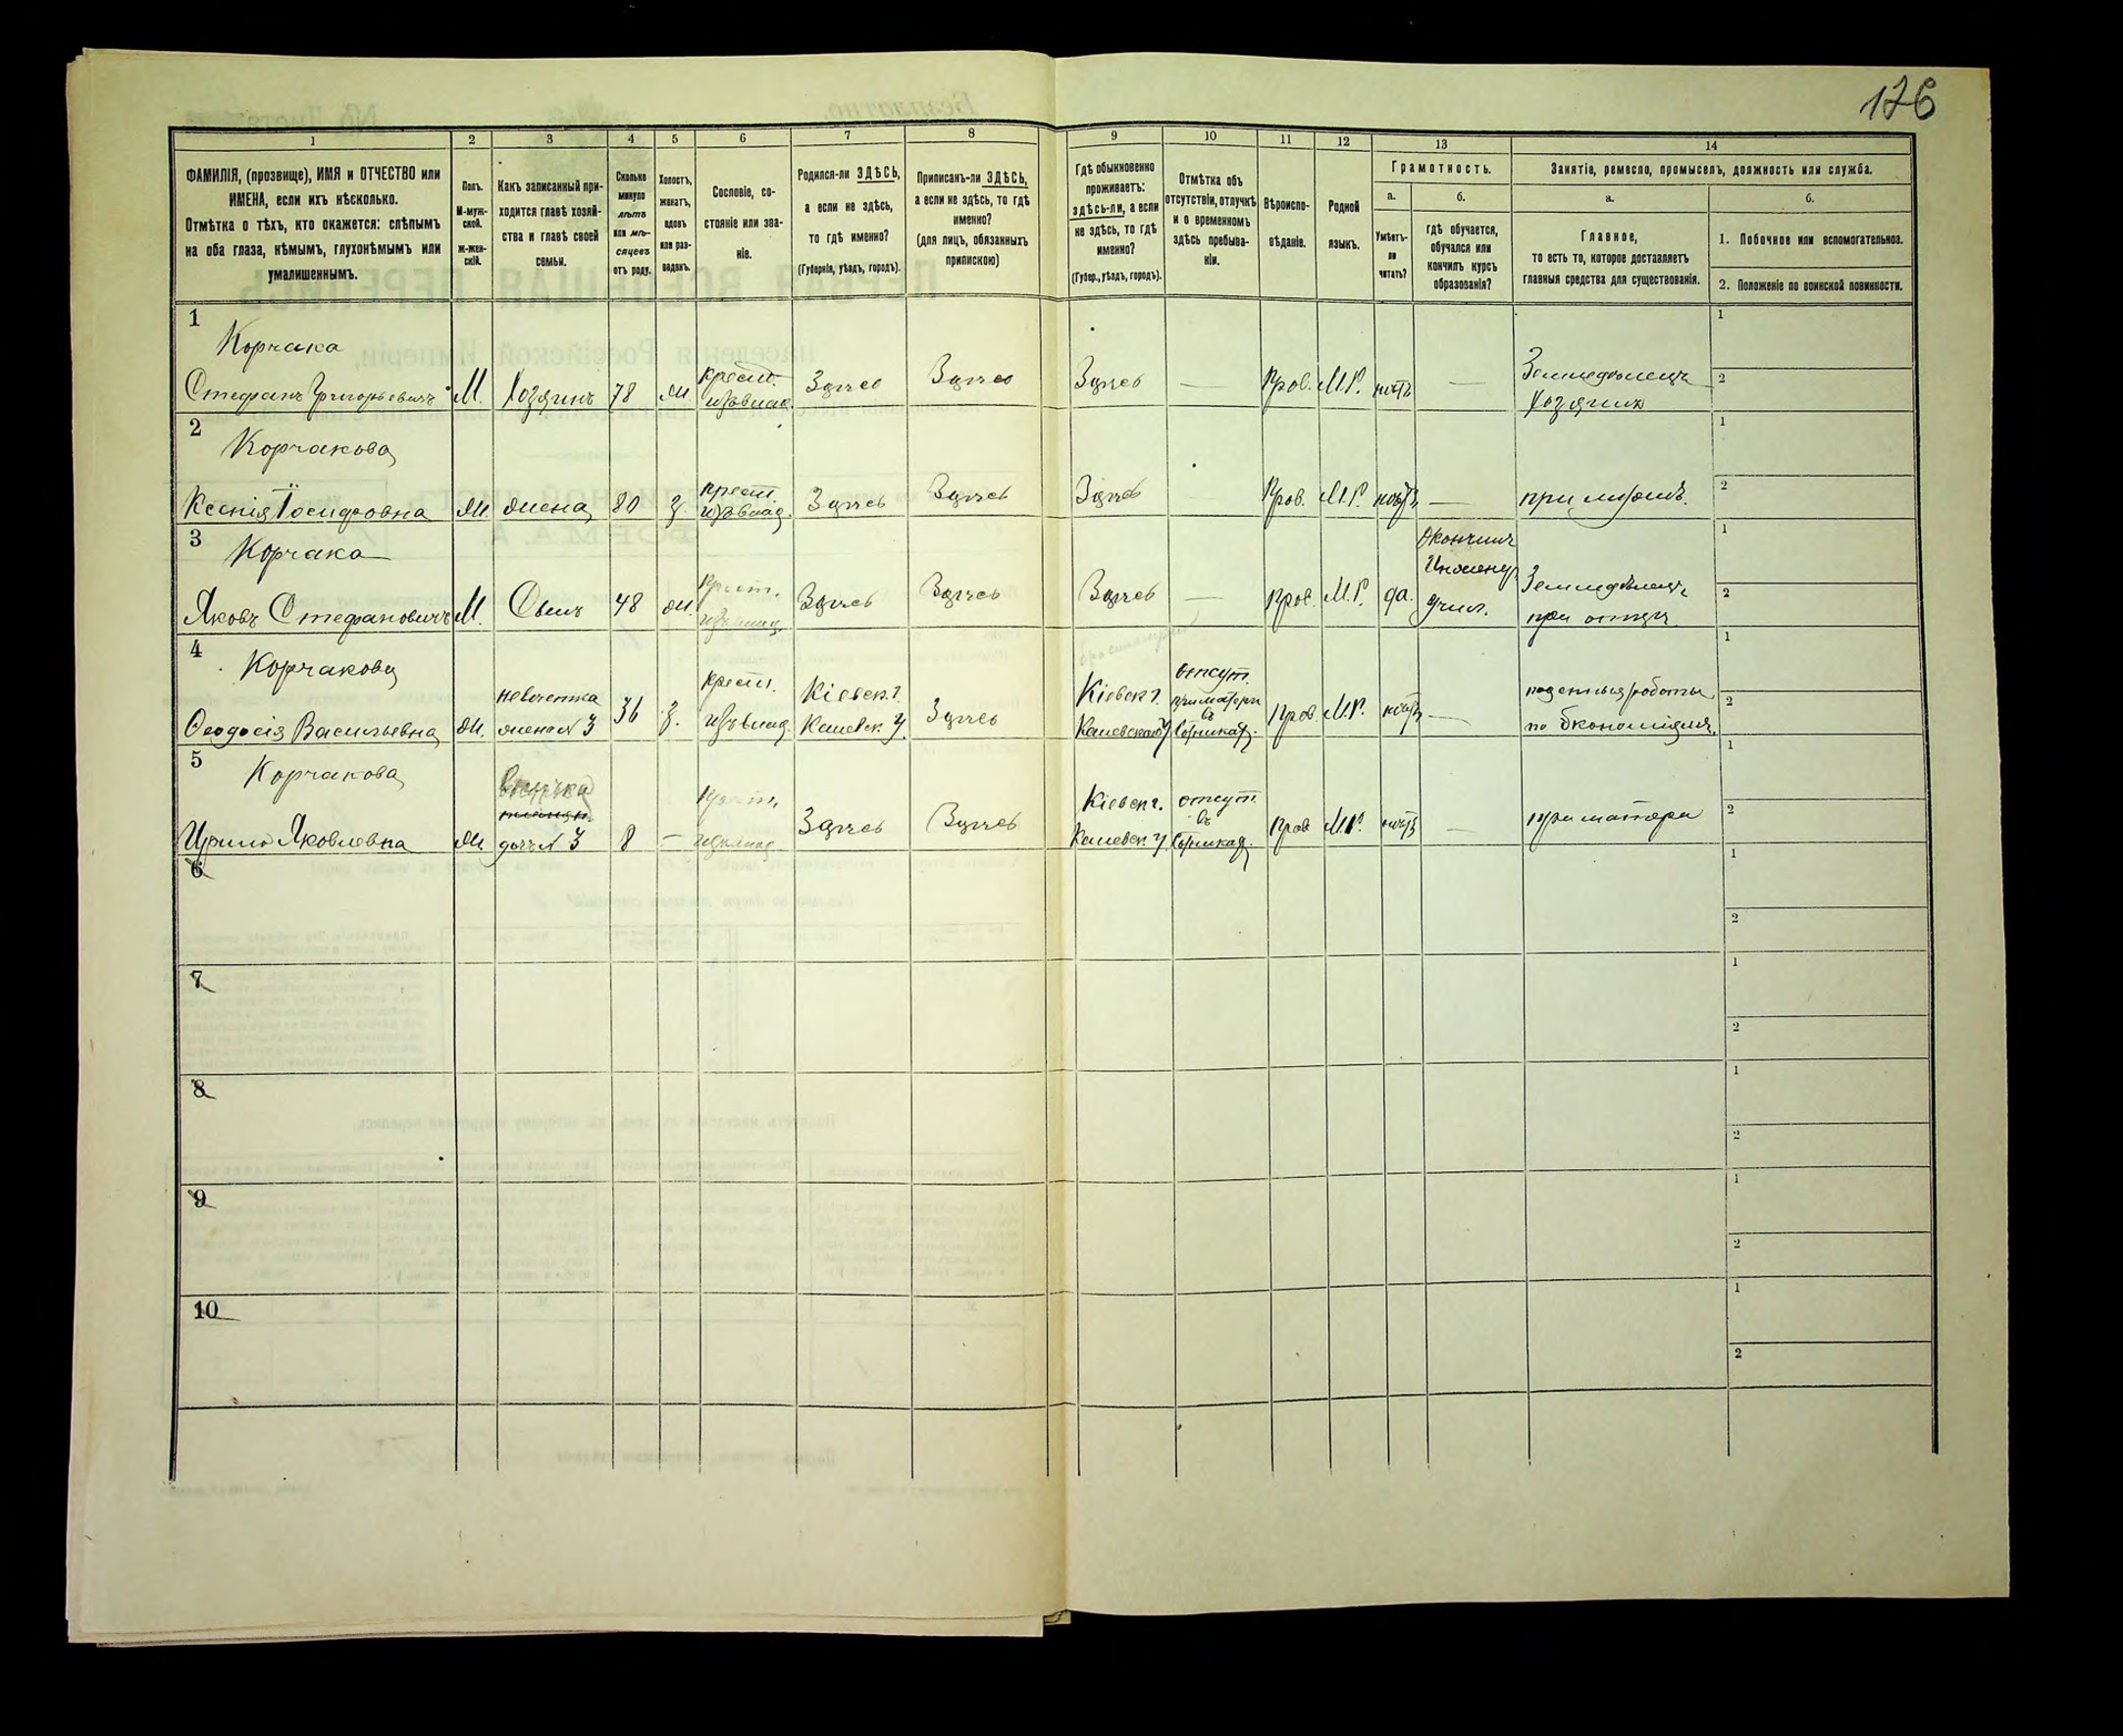 176
1
2
3
4
5
6
7
8
9
10
11
12
13
14
ФАМИЛІЯ, (прозвище), ИМЯ и ОТЧЕСТВО или
ИМЕНА, если ихъ нѣсколько.
Отмѣтка о тѣхъ, кто окажется: слѣпымъ
на оба глаза, нѣмымъ, глухонѣмымъ или
умалишеннымъ.
Полъ.
М-муж-
ской.
ж-жен-
скій.
Какъ записанный при-
ходится главѣ хозяй-
ства и главѣ своей
семьи.
Сколько
минуло
лѣтъ
или мѣ-
сяцевъ
отъ роду.
Холостъ,
женатъ,
вдовъ
или раз-
веденъ.
Сословіе, со-
стояніе или зва-
ніе.
Родился-ли ЗДѢСЬ,
а если не здѣсь,
то гдѣ именно?
(Губернія, уѣздъ, городъ).
Приписанъ-ли ЗДѢСЬ,
а если не здѣсь, то гдѣ
именно?
(для лицъ, обязанныхъ
припискою)
Гдѣ обыкновенно
проживаетъ:
здѣсь-ли, а если
не здѣсь, то гдѣ
именно?
(Губер., уѣздъ, городъ).
Отмѣтка объ
отсутствіи, отлучкѣ
и о временномъ
здѣсь пребыва-
ніи.
Вѣроиспо-
вѣданіе.
Родной
языкъ.
Грамотность.
а.
Умѣетъ-
ли
читать?
б.
гдѣ обучается,
обучался или
кончилъ курсъ
образованія?
Занятіе, ремесло, промыселъ, должность или служба.
а.
Главное,
то есть то, которое доставляетъ
главныя средства для существованія.
б.
1. Побочное или вспомогательное.
2. Положеніе по воинской повинности.
1
Корчака
Стефанъ Григорьевичъ М. Хозяинъ 78 ж крест. Здѣсь Здѣсь Здѣсь — Прав. М.Р. нѣтъ — Земледѣлецъ
хозяинъ
1
2
2
Корчакова
Ксенія Іосифовна ж. жена 80 з. крест. Здѣсь Здѣсь Здѣсь Прав. М.Р. нѣтъ — при мужѣ.
1
2
3
Корчака
Яковъ Стефановичъ М. Сынъ 48 ж. крест. Здѣсь Здѣсь Здѣсь — Прав. М.Р. да. Окончилъ
учил. Земледѣлецъ
при отцѣ
1
2
4
Корчакова
Ѳеодосія Васильевна ж. невестка
жена N 3 36 з. крест. Кіевск. г.
Каневск. у. Здѣсь Кіевск. г.
Каневскаго у отсут.
въ
Прав. М.Р. нѣтъ — поденныя работы
по экономіямъ.
1
2
5
Корчакова
Ирина Яковлевна ж внучка
дочь N 3 8 — крест. Здѣсь Здѣсь Кіевск. г.
Каневск. у отсут.
въ
Прав М.Р. нѣтъ — при матери
1
2
6
1
2
7
1
2
8
1
2
9
1
2
10
1
2